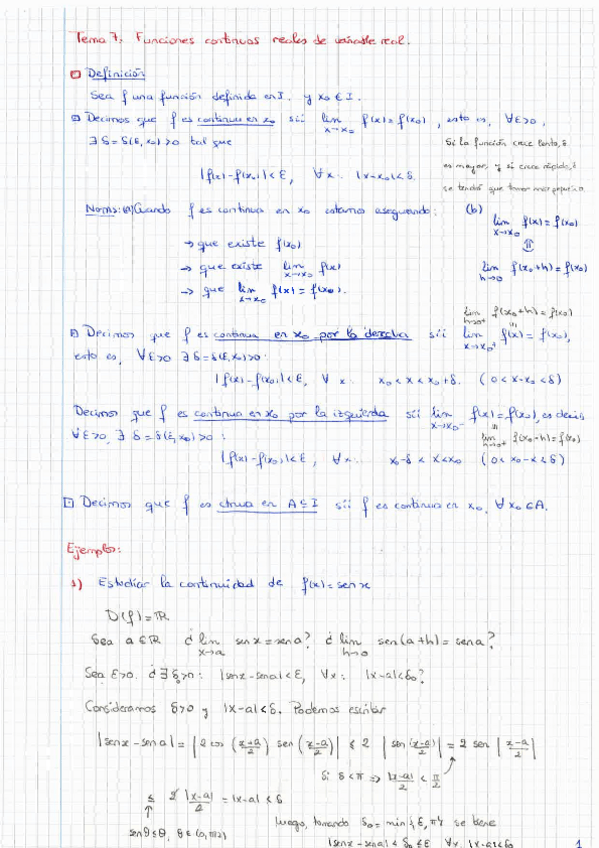 Tema 7: Funciones continuas reales de variable real.
Definición
Sea f una función definida en I. y x₀ ∈ I.
Decimos que f es continua en x₀ sii lim x→x₀ f(x) = f(x₀), esto es, ∀ε>0,
∃ δ = δ(ε,x₀) > 0 tal que
Si la función crece lento, δ
es mayor, y si crece rápido, δ
se tendrá que tomar más pequeño.
|f(x)-f(x₀)| < ε, ∀x: |x-x₀| < δ.
Notas: (a) Cuando f es continua en x₀ estamos asegurando:
→ que existe f(x₀)
→ que existe lim x→x₀ f(x)
→ que lim x→x₀ f(x) = f(x₀).
(b)
lim x→x₀ f(x) = f(x₀)
⇕
lim h→0 f(x₀+h) = f(x₀)
lim h→0⁺ f(x₀+h) = f(x₀)
Decimos que f es continua en x₀ por la derecha sii lim x→x₀⁺ f(x) = f(x₀),
esto es, ∀ε>0 ∃ δ = δ(ε,x₀)>0:
|f(x)-f(x₀)| < ε, ∀x: x₀ < x < x₀+δ. (0 < x-x₀ < δ)
Decimos que f es continua en x₀ por la izquierda sii lim x→x₀⁻ f(x) = f(x₀), es decir
∀ε>0, ∃ δ = δ(ε,x₀)>0:
lim h→0⁺ f(x₀-h) = f(x₀)
|f(x)-f(x₀)| < ε, ∀x: x₀-δ < x < x₀ (0 < x₀-x < δ)
Decimos que f es ctnua en A ⊆ I sii f es continua en x₀, ∀x₀ ∈ A.
Ejemplo:
1) Estudiar la continuidad de f(x) = sen x
D(f) = ℝ
Sea a ∈ ℝ ¿ lim x→a sen x = sen a? ¿ lim h→0 sen(a+h) = sen a?
Sea ε>0. ¿∃ δ₀>0: |sen x - sen a| < ε, ∀x: |x-a| < δ₀?
Consideramos δ>0 y |x-a| < δ. Podemos escribir
|sen x - sen a| = |2 cos (x+a/2) sen (x-a/2)| ≤ 2 |sen (x-a/2)| = 2 sen |x-a/2|
Si δ < π ⇒ |x-a|/2 < π/2
≤ 2 |x-a|/2 = |x-a| < δ
sen θ ≤ θ, θ ∈ (0, π/2)
Luego, tomando δ₀ = min{ε, π} se tiene
|sen x - sen a| < δ₀ ≤ ε ∀x, |x-a| < δ₀
1